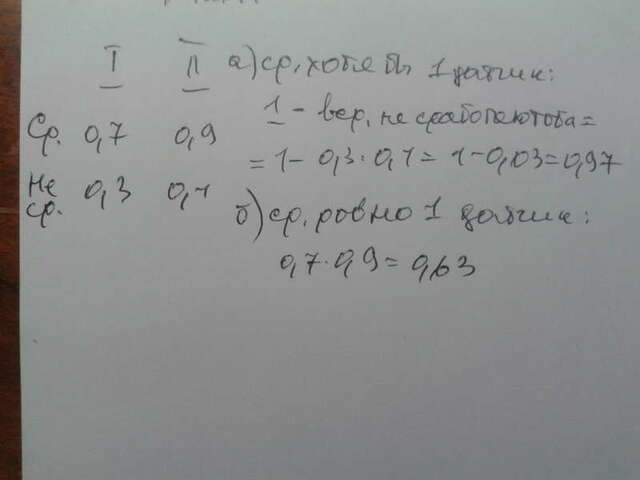 I II
Ср. 0,7 0,9
Не ср. 0,3 0,1
а) ср. хотя бы 1 датчик:
1 - вер. не сработают оба =
= 1 - 0,3 · 0,1 = 1 - 0,03 = 0,97
б) ср. ровно 1 датчик:
0,7 · 0,9 = 0,63